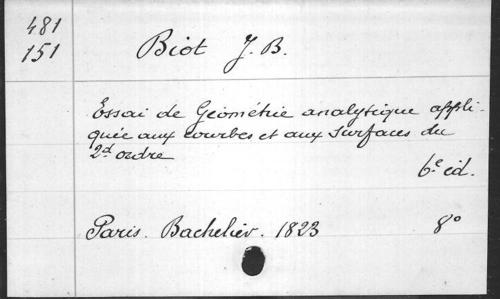 481
151
Biot J. B.
Essai de Géométrie analytique appli-
quée aux courbes et aux surfaces du
2d ordre
6e éd.
Paris. Bachelier. 1823 8°